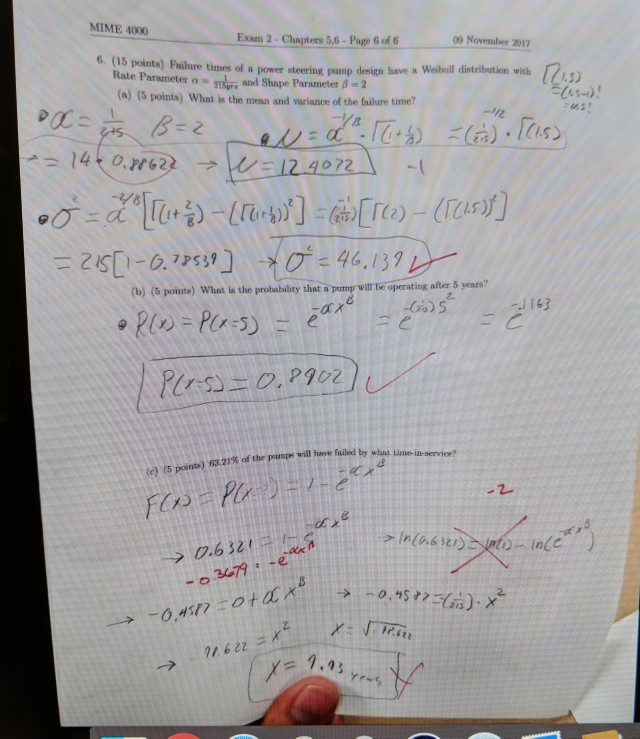 MIME 4000
Exam 2 - Chapters 5,6 - Page 6 of 6
09 November 2017
6. (15 points) Failure times of a power steering pump design have a Weibull distribution with
Rate Parameter α = 1/215yrs and Shape Parameter β = 2
Γ(1.5)
=(1.5-1)!
=0.5!
(a) (5 points) What is the mean and variance of the failure time?
α = 1/215 β = 2 μ = α^-1/β · Γ(1+1/β) = (1/215)^-1/2 · Γ(1.5)
= 14 · 0.88622 → μ = 12.4072 -1
σ² = α^-2/β [Γ(1+2/β) - (Γ(1+1/β))²] = (1/215)^-1 [Γ(2) - (Γ(1.5))²]
= 215[1-0.78539] → σ² = 46.139
(b) (5 points) What is the probability that a pump will be operating after 5 years?
R(x) = P(x=5) = e^-αx^β = e^-(1/215)5² = e^-.1163
P(x=5) = 0.8902
(c) (5 points) 63.21% of the pumps will have failed by what time-in-service?
F(x) = P(x ) = 1 - e^-αx^β
-2
→ 0.6321 = 1 - e^-αx^β → ln(0.6321) = ln(1) - ln(e^-αx^β)
-0.3679 = -e^-αx^β
→ -0.4587 = 0 + αx^β → -0.4587 = (1/215) · x²
→ 98.622 = x² x = √98.622
x = 9.93 years